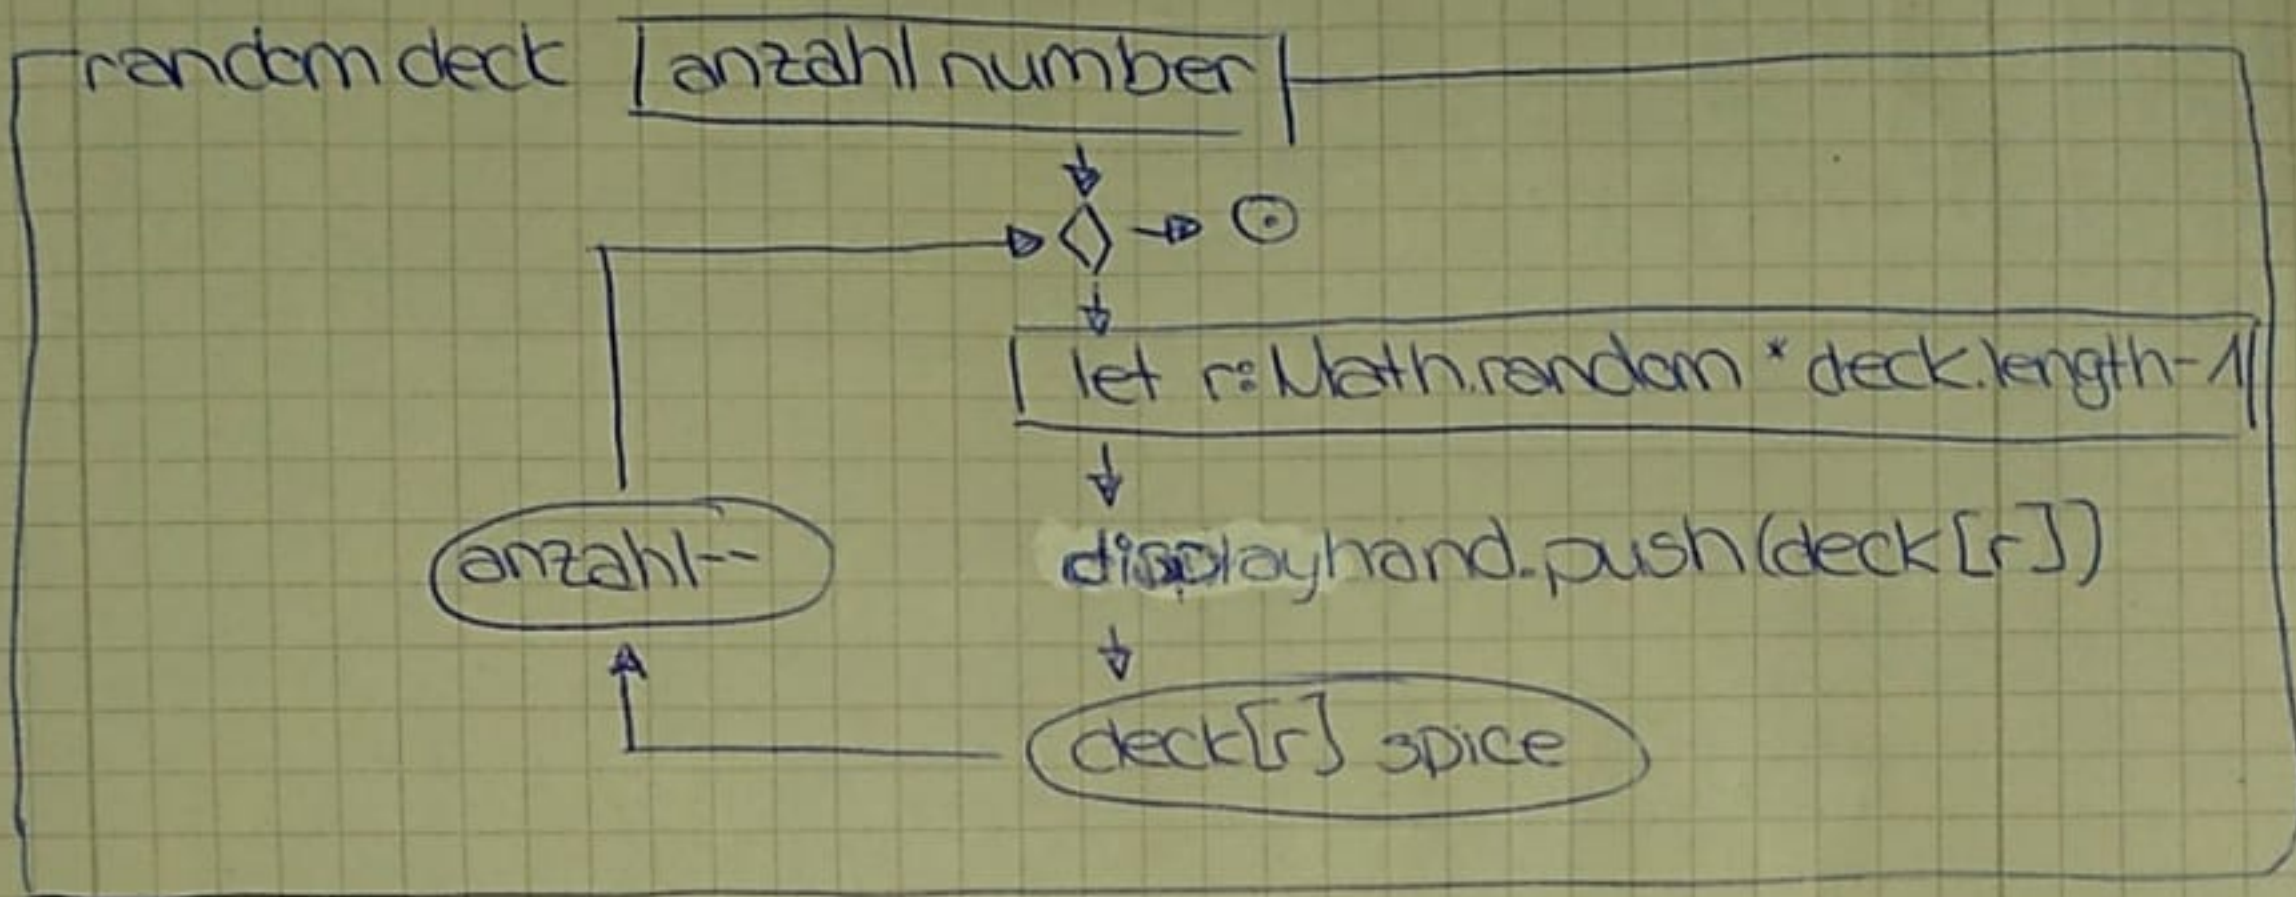 random deck anzahl number
let r: Math.random * deck.length-1
displayhand.push(deck[r])
anzahl--
deck[r] spice